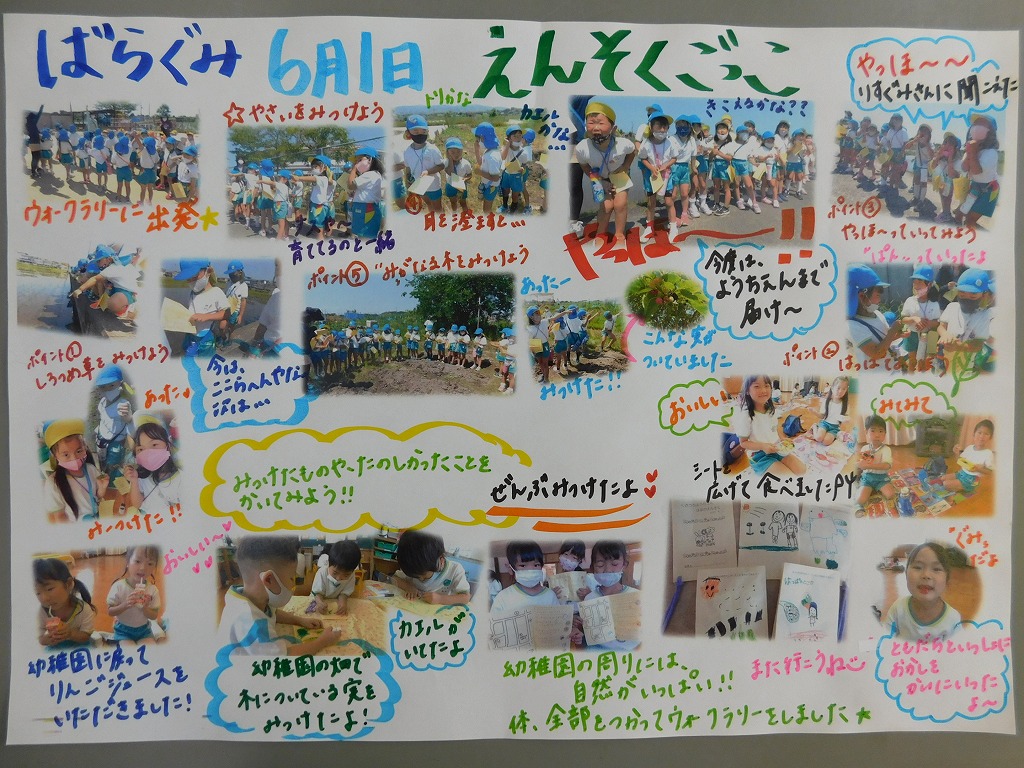 ばらぐみ 6月1日 えんそくごっこ
やっほ〜〜
りすぐみさんに聞こえた
☆やさいをみつけよう
育ててるのと一緒
カエル
かな…
きこえるかな??
ウォークラリーに出発★
耳を澄ますと…
やっほ〜!!
今度は、
ようちえんまで
届け〜
ポイント③
やっほ〜っていってみよう
ポイント①
しろつめ草をみつけよう
今は、
ここらへんやな
次は…
ポイント⑤ "みがなる木をみつけよう
あったー
みつけた!!
こんな実が
ついていました
"ぱん〜っていったよ
あった
みつけた!!
みつけたものや、たのしかったことを
かいてみよう!!
ぜんぶみつけたよ
おいしい
シートを
広げて食べました
みてみて
おいしい〜
幼稚園に戻って
りんごジュースを
いただきました!
カエルが
いてたよ
幼稚園の畑で
木についている実を
みつけたよ!
幼稚園の周りには、
自然がいっぱい!!
体、全部をつかってウォークラリーをしました★
また行こうね
"ぐみっ
だよ
ともだちといっしょに
おかしを
かいにいった
よ〜